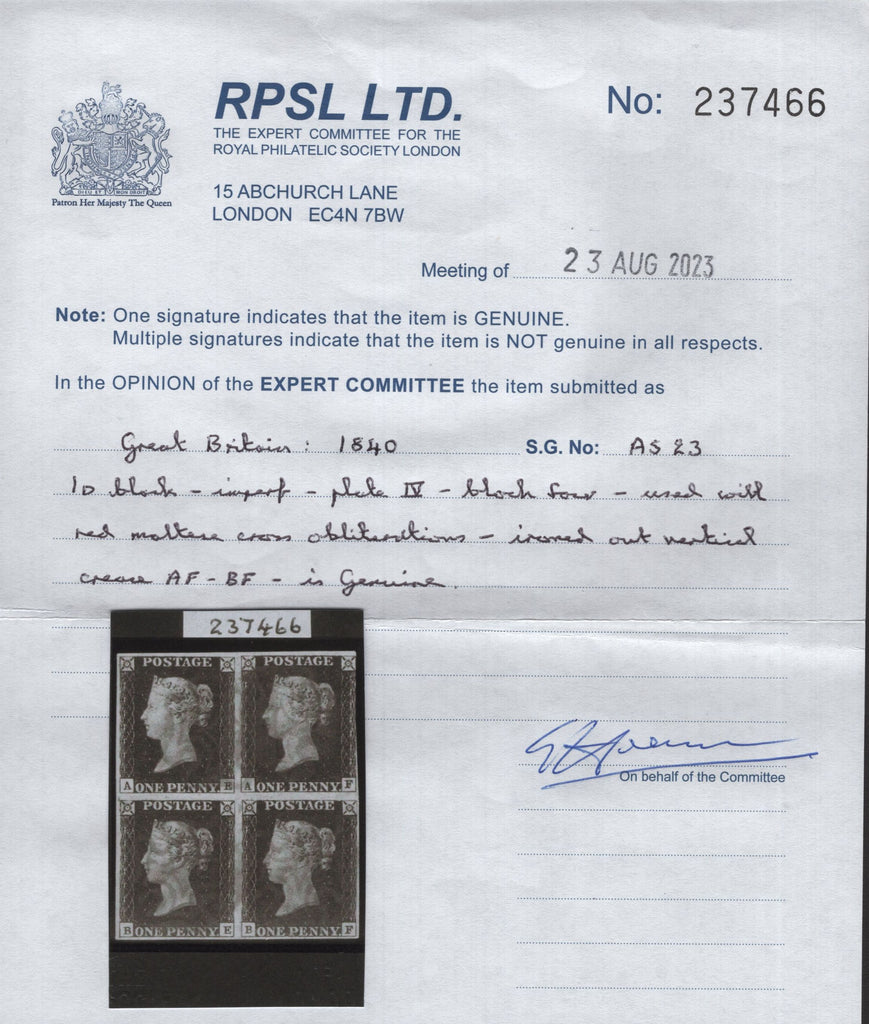 RPSL LTD.
THE EXPERT COMMITTEE FOR THE
ROYAL PHILATELIC SOCIETY LONDON
15 ABCHURCH LANE
LONDON EC4N 7BW
No: 237466
DIEU ET MON DROIT
Patron Her Majesty The Queen
Meeting of 23 AUG 2023
Note: One signature indicates that the item is GENUINE.
Multiple signatures indicate that the item is NOT genuine in all respects.
In the OPINION of the EXPERT COMMITTEE the item submitted as
Great Britain: 1840 S.G. No: AS 23
1D black - imperf - plate IV - block four - used with
red maltese cross obliterations - ironed out vertical
crease AF - BF - is Genuine.
237466
POSTAGE POSTAGE
A ONE PENNY E A ONE PENNY F
POSTAGE POSTAGE
B ONE PENNY E B ONE PENNY F
On behalf of the Committee